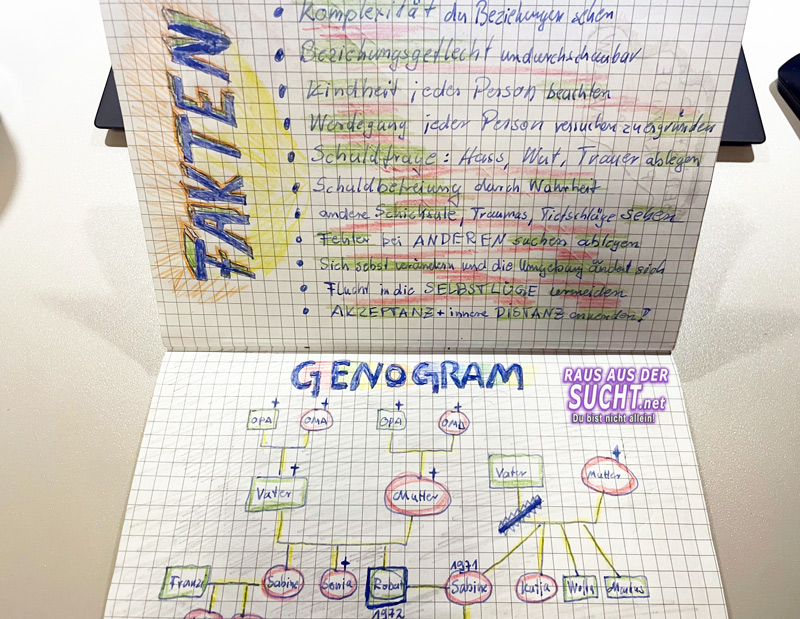 FAKTEN
• Komplexität der Beziehungen sehen
• Beziehungsgeflecht undurchschaubar
• Kindheit jeder Person beachten
• Werdegang jeder Person versuchen zu ergründen
• Schuldfrage: Hass, Wut, Trauer ablegen
• Schuldbefreiung durch Wahrheit
• andere Schicksale, Traumas, Tiefschläge sehen
• Fehler bei ANDEREN suchen ablegen
• Sich selbst verändern und die Umgebung ändert sich
• Flucht in die SELBSTLÜGE vermeiden
• AKZEPTANZ + innere DISTANZ anwenden!
GENOGRAM
RAUS AUS DER
SUCHT.net
Du bist nicht allein!
OPA OMA OPA OMA
Vater Mutter Vater Mutter
1971
Franz Sabine Sonja Robert Sabine Katja Markus
1972